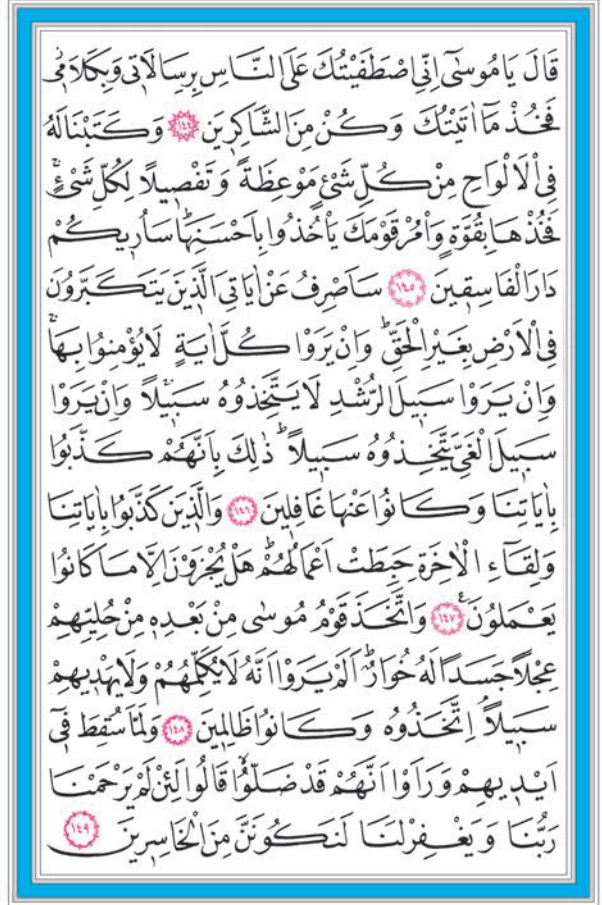 قَالَ يَامُوسٰٓى اِنِّي اصْطَفَيْتُكَ عَلَى النَّاسِ بِرِسَالَاتٖي وَبِكَلَامٖيۘ
فَخُذْ مَٓا اٰتَيْتُكَ وَكُنْ مِنَ الشَّاكِرٖينَ ﴿١٤٤﴾ وَكَتَبْنَا لَهُ
فِي الْاَلْوَاحِ مِنْ كُلِّ شَيْءٍ مَوْعِظَةً وَتَفْصٖيلًا لِكُلِّ شَيْءٍۚ
فَخُذْهَا بِقُوَّةٍ وَأْمُرْ قَوْمَكَ يَأْخُذُوا بِاَحْسَنِهَاۜ سَاُرٖيكُمْ
دَارَ الْفَاسِقٖينَ ﴿١٤٥﴾ سَاَصْرِفُ عَنْ اٰيَاتِيَ الَّذٖينَ يَتَكَبَّرُونَ
فِي الْاَرْضِ بِغَيْرِ الْحَقِّۜ وَاِنْ يَرَوْا كُلَّ اٰيَةٍ لَا يُؤْمِنُوا بِهَاۚ
وَاِنْ يَرَوْا سَبٖيلَ الرُّشْدِ لَا يَتَّخِذُوهُ سَبٖيلًاۚ وَاِنْ يَرَوْا
سَبٖيلَ الْغَيِّ يَتَّخِذُوهُ سَبٖيلًاۜ ذٰلِكَ بِاَنَّهُمْ كَذَّبُوا
بِاٰيَاتِنَا وَكَانُوا عَنْهَا غَافِلٖينَ ﴿١٤٦﴾ وَالَّذٖينَ كَذَّبُوا بِاٰيَاتِنَا
وَلِقَٓاءِ الْاٰخِرَةِ حَبِطَتْ اَعْمَالُهُمْۜ هَلْ يُجْزَوْنَ اِلَّا مَا كَانُوا
يَعْمَلُونَ ﴿١٤٧﴾ وَاتَّخَذَ قَوْمُ مُوسٰى مِنْ بَعْدِهٖ مِنْ حُلِيِّهِمْ
عِجْلًا جَسَدًا لَهُ خُوَارٌۜ اَلَمْ يَرَوْا اَنَّهُ لَا يُكَلِّمُهُمْ وَلَا يَهْدٖيهِمْ
سَبٖيلًاۢ اِتَّخَذُوهُ وَكَانُوا ظَالِمٖينَ ﴿١٤٨﴾ وَلَمَّا سُقِطَ فٖٓي
اَيْدٖيهِمْ وَرَاَوْا اَنَّهُمْ قَدْ ضَلُّواۙ قَالُوا لَئِنْ لَمْ يَرْحَمْنَا
رَبُّنَا وَيَغْفِرْ لَنَا لَنَكُونَنَّ مِنَ الْخَاسِرٖينَ ﴿١٤٩﴾